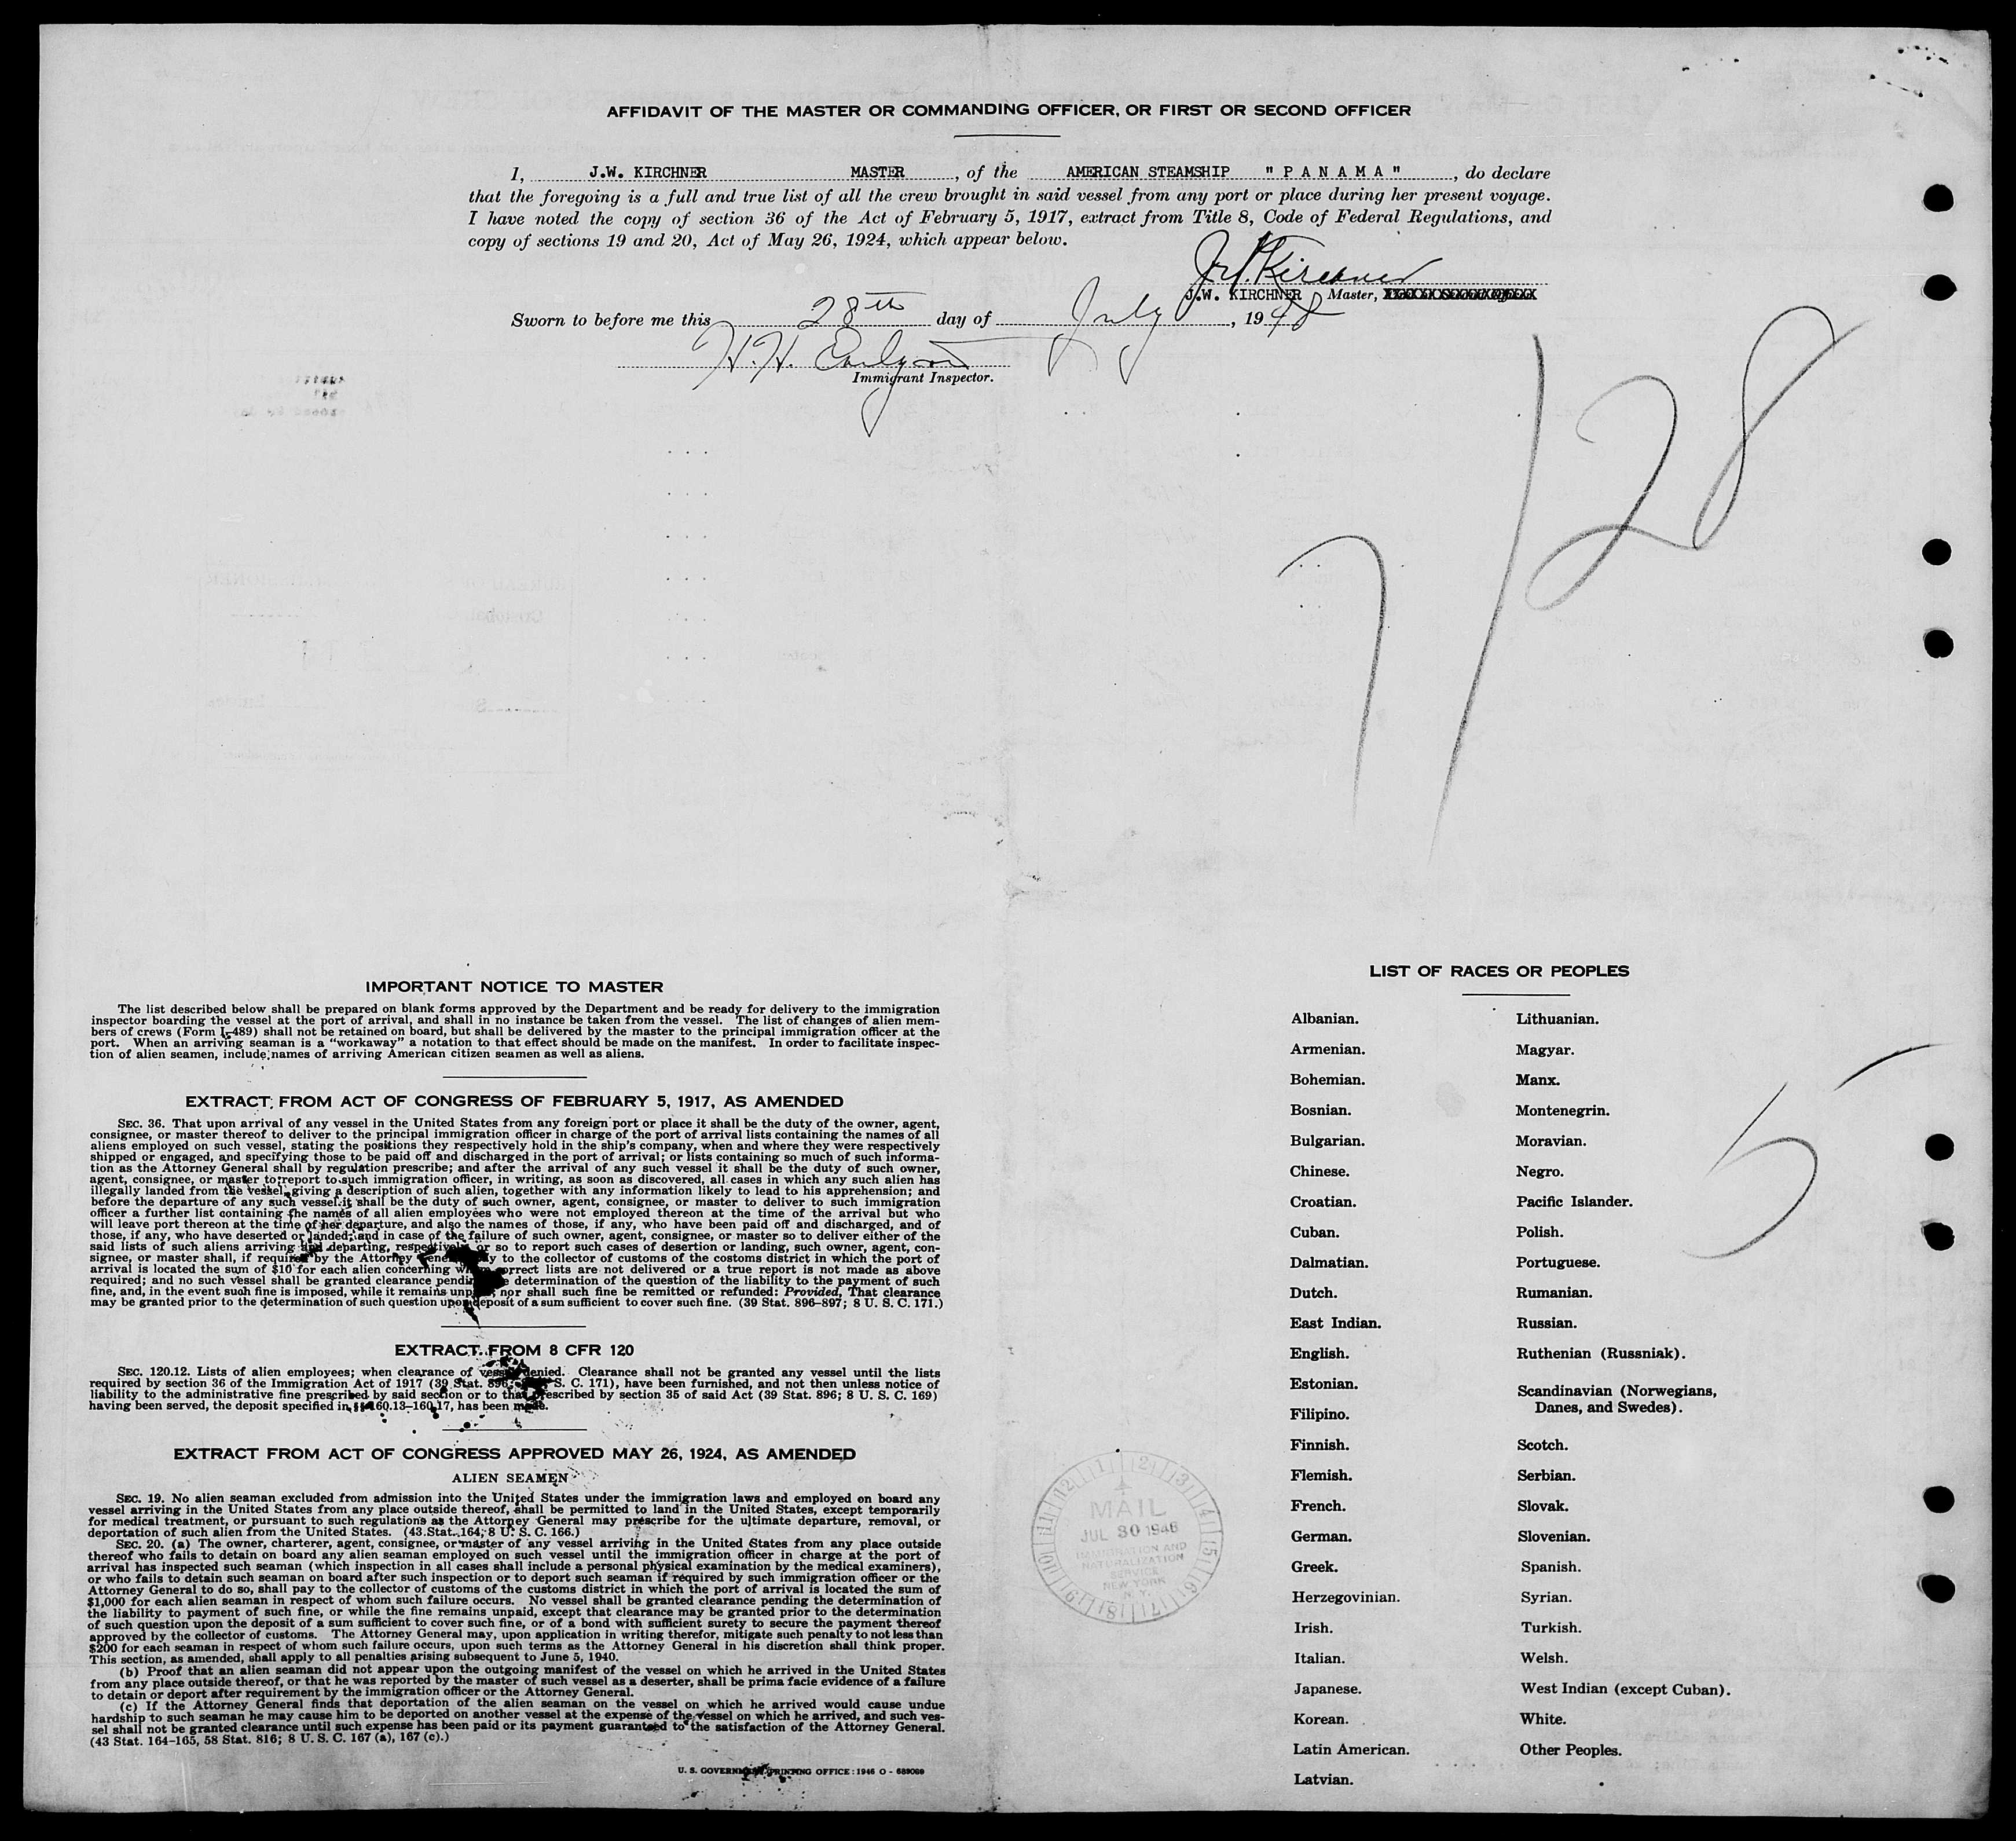 AFFIDAVIT OF THE MASTER OR COMMANDING OFFICER, OR FIRST OR SECOND OFFICER
I, J.W. KIRCHNER MASTER, of the AMERICAN STEAMSHIP "P A N A M A", do declare
that the foregoing is a full and true list of all the crew brought in said vessel from any port or place during her present voyage.
I have noted the copy of section 36 of the Act of February 5, 1917, extract from Title 8, Code of Federal Regulations, and
copy of sections 19 and 20, Act of May 26, 1924, which appear below.
J.W. Kirchner
J.W. KIRCHNER Master,
Sworn to before me this 28th day of July, 1948
H.H.
Immigrant Inspector.
7/28
IMPORTANT NOTICE TO MASTER
The list described below shall be prepared on blank forms approved by the Department and be ready for delivery to the immigration
inspector boarding the vessel at the port of arrival, and shall in no instance be taken from the vessel. The list of changes of alien mem-
bers of crews (Form I-489) shall not be retained on board, but shall be delivered by the master to the principal immigration officer at the
port. When an arriving seaman is a "workaway" a notation to that effect should be made on the manifest. In order to facilitate inspec-
tion of alien seamen, include names of arriving American citizen seamen as well as aliens.
EXTRACT FROM ACT OF CONGRESS OF FEBRUARY 5, 1917, AS AMENDED
SEC. 36. That upon arrival of any vessel in the United States from any foreign port or place it shall be the duty of the owner, agent,
consignee, or master thereof to deliver to the principal immigration officer in charge of the port of arrival lists containing the names of all
aliens employed on such vessel, stating the positions they respectively hold in the ship's company, when and where they were respectively
shipped or engaged, and specifying those to be paid off and discharged in the port of arrival; or lists containing so much of such informa-
tion as the Attorney General shall by regulation prescribe; and after the arrival of any such vessel it shall be the duty of such owner,
agent, consignee, or master to report to such immigration officer, in writing, as soon as discovered, all cases in which any such alien has
illegally landed from the vessel, giving a description of such alien, together with any information likely to lead to his apprehension; and
before the departure of any such vessel it shall be the duty of such owner, agent, consignee, or master to deliver to such immigration
officer a further list containing the names of all alien employees who were not employed thereon at the time of the arrival but who
will leave port thereon at the time of her departure, and also the names of those, if any, who have been paid off and discharged, and of
those, if any, who have deserted or landed; and in case of the failure of such owner, agent, consignee, or master so to deliver either of the
said lists of such aliens arriving and departing, respectively, or so to report such cases of desertion or landing, such owner, agent, con-
signee, or master shall, if required by the Attorney General, pay to the collector of customs of the customs district in which the port of
arrival is located the sum of $10 for each alien concerning whom correct lists are not delivered or a true report is not made as above
required; and no such vessel shall be granted clearance pending the determination of the question of the liability to the payment of such
fine, and, in the event such fine is imposed, while it remains unpaid, nor shall such fine be remitted or refunded: Provided, That clearance
may be granted prior to the determination of such question upon deposit of a sum sufficient to cover such fine. (39 Stat. 896-897; 8 U. S. C. 171.)
EXTRACT FROM 8 CFR 120
SEC. 120.12. Lists of alien employees; when clearance of vessel denied. Clearance shall not be granted any vessel until the lists
required by section 36 of the Immigration Act of 1917 (39 Stat. 896; S. C. 171), have been furnished, and not then unless notice of
liability to the administrative fine prescribed by said section or to that prescribed by section 35 of said Act (39 Stat. 896; 8 U. S. C. 169)
having been served, the deposit specified in §§ 160.13-160.17, has been made.
EXTRACT FROM ACT OF CONGRESS APPROVED MAY 26, 1924, AS AMENDED
ALIEN SEAMEN
SEC. 19. No alien seaman excluded from admission into the United States under the immigration laws and employed on board any
vessel arriving in the United States from any place outside thereof, shall be permitted to land in the United States, except temporarily
for medical treatment, or pursuant to such regulations as the Attorney General may prescribe for the ultimate departure, removal, or
deportation of such alien from the United States. (43 Stat. 164; 8 U. S. C. 166.)
SEC. 20. (a) The owner, charterer, agent, consignee, or master of any vessel arriving in the United States from any place outside
thereof who fails to detain on board any alien seaman employed on such vessel until the immigration officer in charge at the port of
arrival has inspected such seaman (which inspection in all cases shall include a personal physical examination by the medical examiners),
or who fails to detain such seaman on board after such inspection or to deport such seaman if required by such immigration officer or the
Attorney General to do so, shall pay to the collector of customs of the customs district in which the port of arrival is located the sum of
$1,000 for each alien seaman in respect of whom such failure occurs. No vessel shall be granted clearance pending the determination of
the liability to payment of such fine, or while the fine remains unpaid, except that clearance may be granted prior to the determination
of such question upon the deposit of a sum sufficient to cover such fine, or of a bond with sufficient surety to secure the payment thereof
approved by the collector of customs. The Attorney General may, upon application in writing therefor, mitigate such penalty to not less than
$200 for each seaman in respect of whom such failure occurs, upon such terms as the Attorney General in his discretion shall think proper.
This section, as amended, shall apply to all penalties arising subsequent to June 5, 1940.
(b) Proof that an alien seaman did not appear upon the outgoing manifest of the vessel on which he arrived in the United States
from any place outside thereof, or that he was reported by the master of such vessel as a deserter, shall be prima facie evidence of a failure
to detain or deport after requirement by the immigration officer or the Attorney General.
(c) If the Attorney General finds that deportation of the alien seaman on the vessel on which he arrived would cause undue
hardship to such seaman he may cause him to be deported on another vessel at the expense of the vessel on which he arrived, and such ves-
sel shall not be granted clearance until such expense has been paid or its payment guaranteed to the satisfaction of the Attorney General.
(43 Stat. 164-165, 58 Stat. 816; 8 U. S. C. 167 (a), 167 (c).)
U. S. GOVERNMENT PRINTING OFFICE: 1946 O - 689069
MAIL
JUL 30 1948
IMMIGRATION AND
NATURALIZATION
SERVICE
NEW YORK
N. Y.
1 2 3 4 5 6 7 8 9 10 11 12
LIST OF RACES OR PEOPLES
Albanian.
Armenian.
Bohemian.
Bosnian.
Bulgarian.
Chinese.
Croatian.
Cuban.
Dalmatian.
Dutch.
East Indian.
English.
Estonian.
Filipino.
Finnish.
Flemish.
French.
German.
Greek.
Herzegovinian.
Irish.
Italian.
Japanese.
Korean.
Latin American.
Latvian.
Lithuanian.
Magyar.
Manx.
Montenegrin.
Moravian.
Negro.
Pacific Islander.
Polish.
Portuguese.
Rumanian.
Russian.
Ruthenian (Russniak).
Scandinavian (Norwegians,
Danes, and Swedes).
Scotch.
Serbian.
Slovak.
Slovenian.
Spanish.
Syrian.
Turkish.
Welsh.
West Indian (except Cuban).
White.
Other Peoples.
5